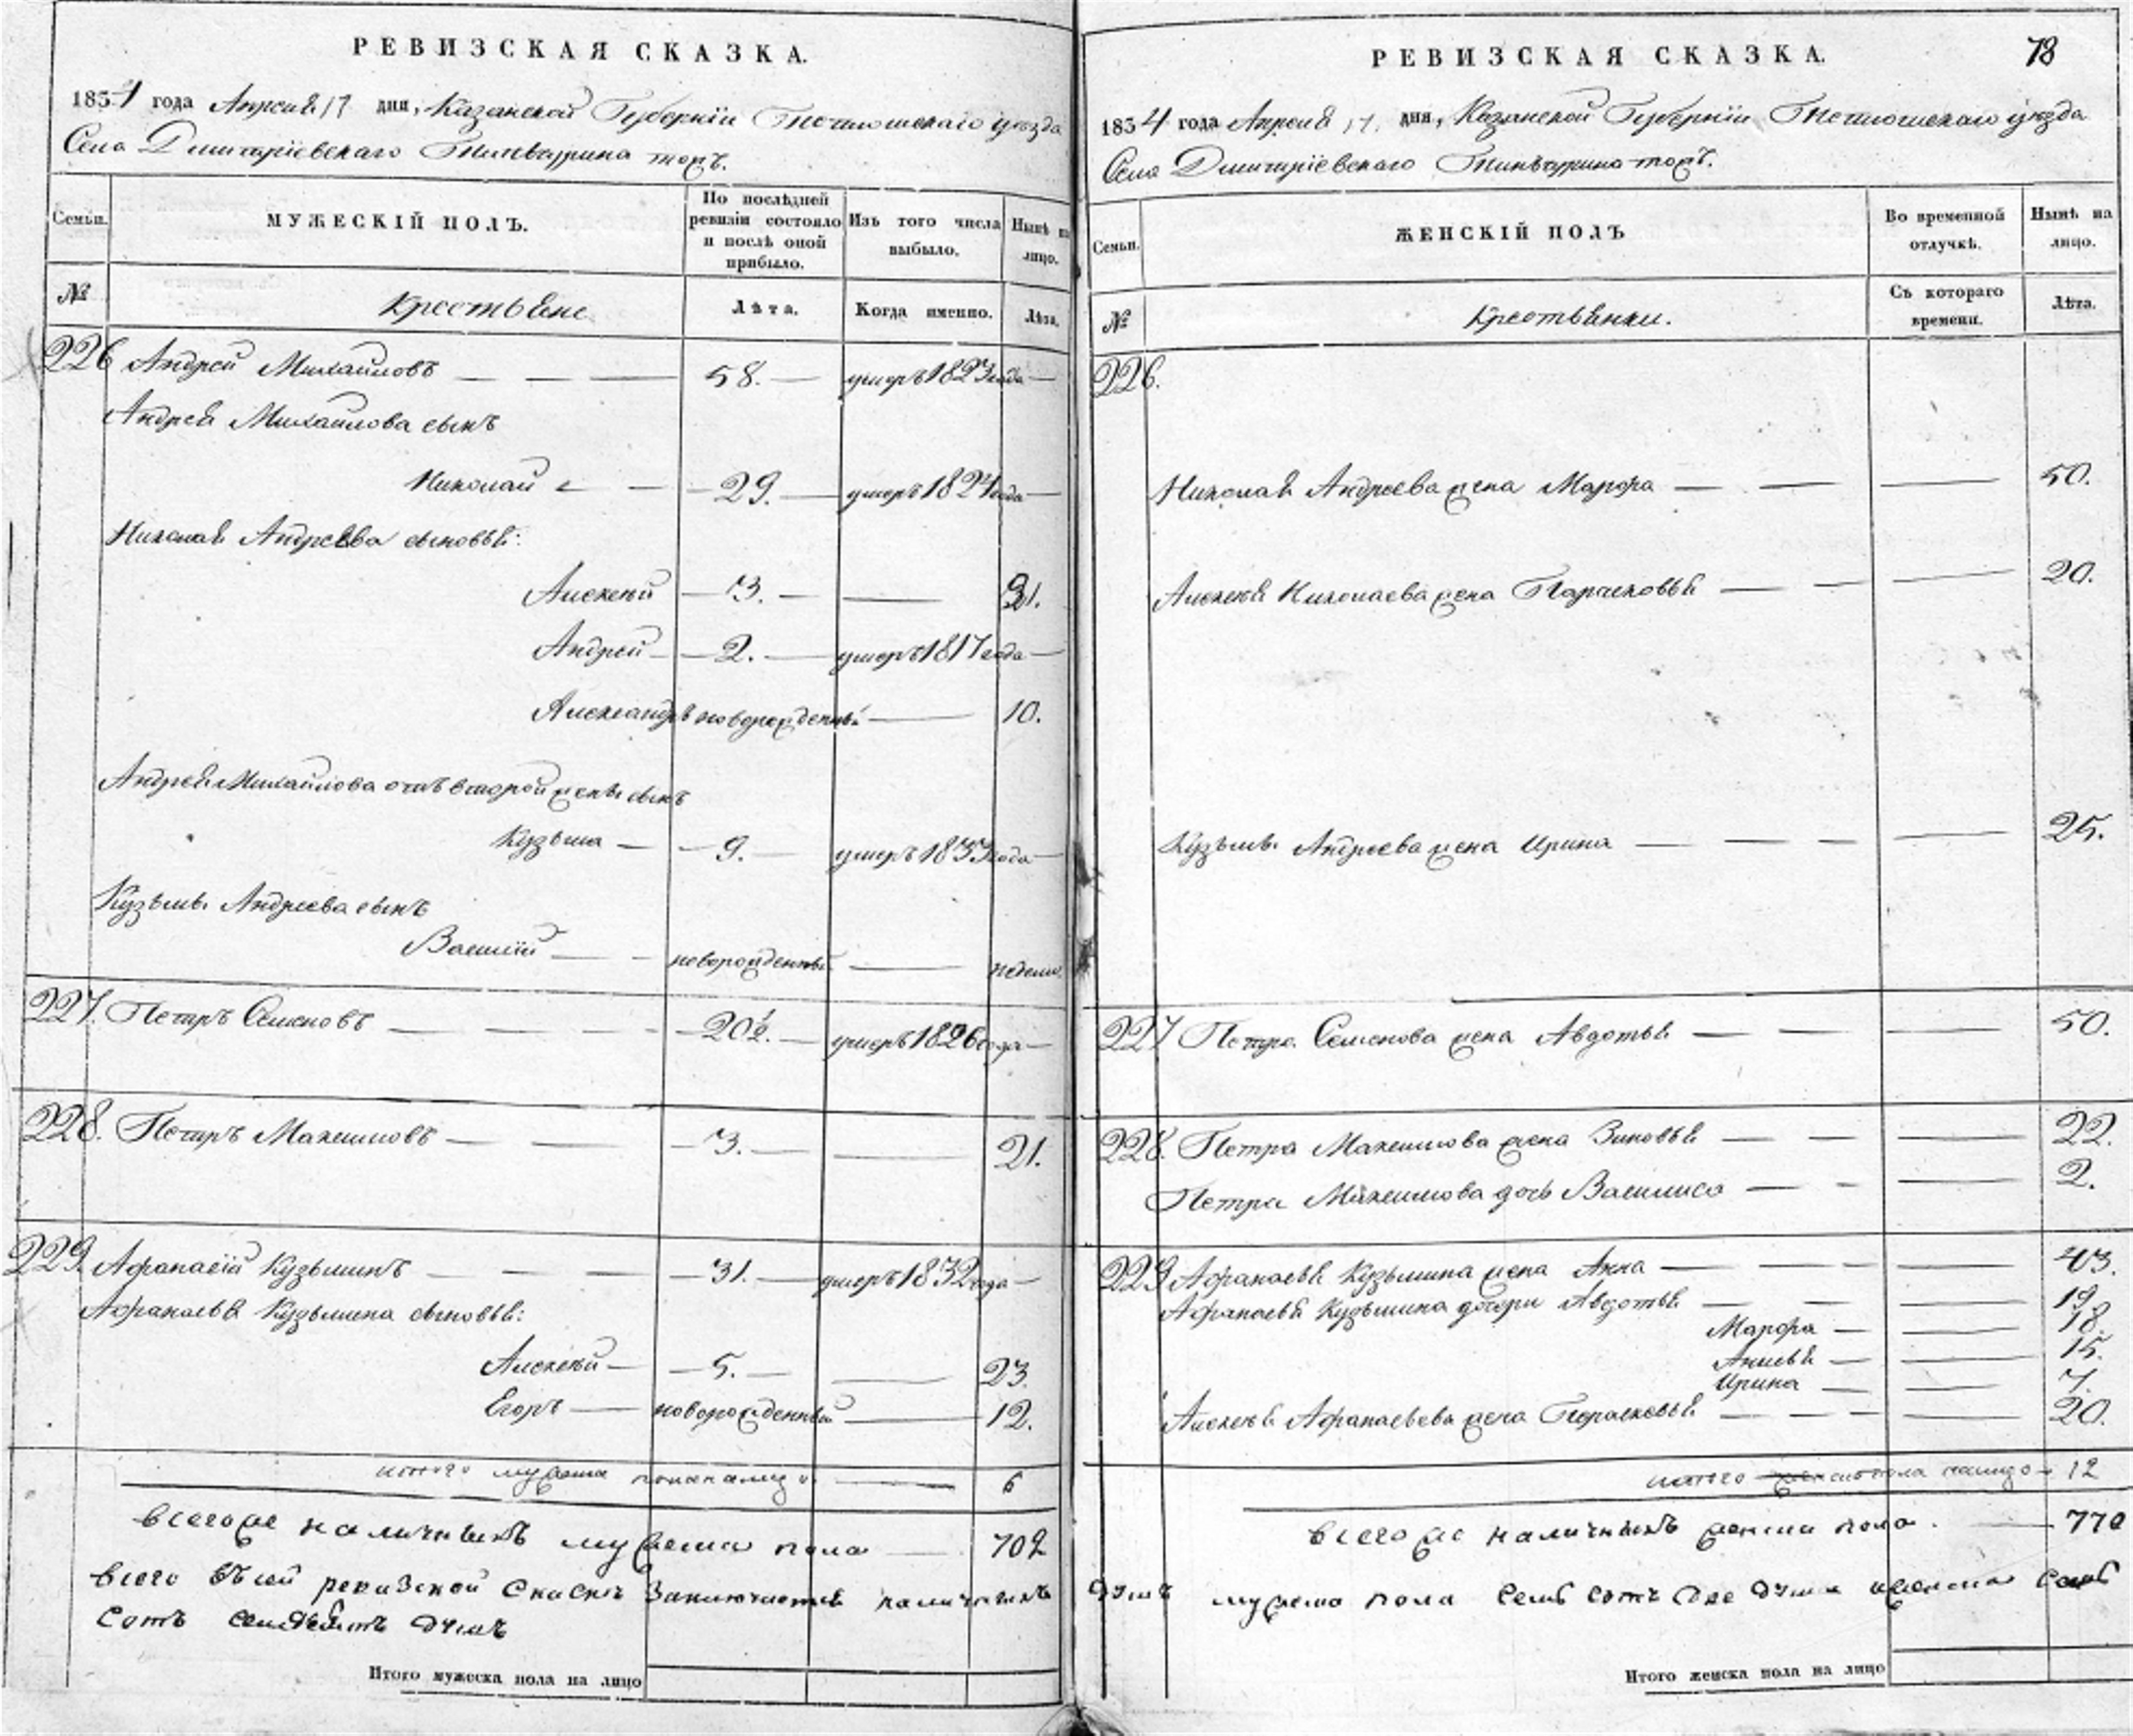 РЕВИЗСКАЯ СКАЗКА.
1834 года Апреля 17 дня, Казанской Губернии Тетюшскаго уезда
Села Дмитріевскаго Тинчурина тожъ.
Семьи.
МУЖЕСКІЙ ПОЛЪ.
По послѣдней ревизіи состояло и послѣ оной прибыло.
Изъ того числа выбыло.
Нынѣ на лицо.
№
Крестьяне
Лѣта.
Когда именно.
Лѣта.
226 Андрей Михайловъ — 58. — умеръ 1823 года —
Андрея Михайлова сынъ
Николай — 29. — умеръ 1824 года —
Николая Андреева сыновья:
Алексей — 3. — 21.
Андрей — 2. — умеръ 1817 года —
Александръ новорожденный — 10.
Андрея Михайлова отъ второй жены сынъ
Кузьма — 9. — умеръ 1833 года —
Кузьмы Андреева сынъ
Василій — новорожденный — недели.
227. Петръ Семеновъ — 20½. — умеръ 1826 года —
228. Петръ Максимовъ — 3. — 21.
229. Афанасій Кузьминъ — 31. — умеръ 1832 года —
Афанасья Кузьмина сыновья:
Алексей — 5. — 23.
Егоръ — новорожденный — 12.
итого мужеска пола налицо — 6
всего же наличныхъ мужеска пола — 702
всего въ сей ревизской скаске заключается наличныхъ
сотъ семдесятъ душъ
Итого мужеска пола на лицо
РЕВИЗСКАЯ СКАЗКА.
78
1834 года Апреля 17. дня, Казанской Губерніи Тетюшскаго уезда
Села Дмитріевскаго Тинчурина тожъ.
Семьи.
ЖЕНСКІЙ ПОЛЪ
Во временной отлучкѣ.
Нынѣ на лицо.
№
Крестьянки.
Съ котораго времени.
Лѣта.
226.
Николая Андреева жена Марфа — 50.
Алексея Николаева жена Парасковья — 20.
Кузьмы Андреева жена Ирина — 25.
227 Петра Семенова жена Авдотья — 50.
228. Петра Максимова жена Зиновья — 22.
Петра Максимова дочь Василиса — 2.
229 Афанасья Кузьмина жена Анна — 43.
Афанасья Кузьмина дочери Авдотья — 19.
Марфа — 18.
Анисья — 15.
Ирина — 7.
Алексея Афанасьева жена Парасковья — 20.
итого женска пола налицо — 12
всего же наличныхъ женска пола. — 770
душъ мужеска пола семь сотъ две души женска семь
Итого женска пола на лицо